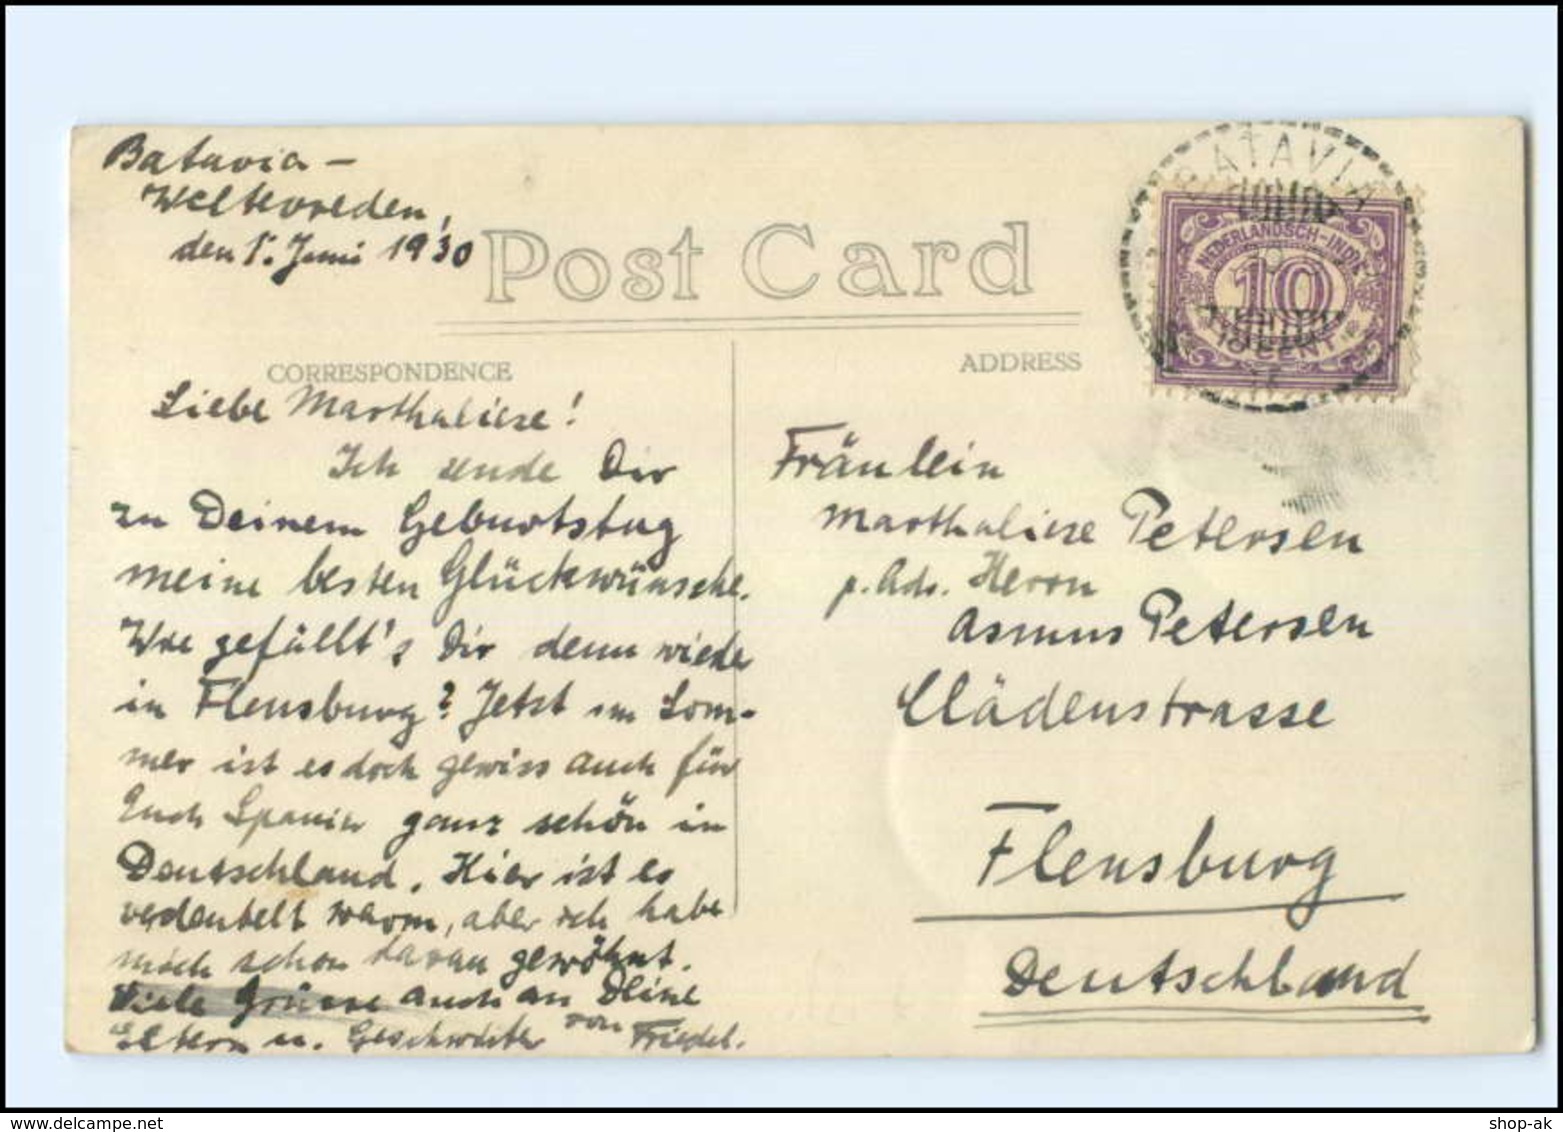 Batavia –
Weltevreden,
den 1. Juni 1930
Post Card
CORRESPONDENCE
ADDRESS
BATAVIA
NEDERLANDSCH-INDIË
10
10 CENT
Liebe Marthaliese!
Ich sende Dir
zu Deinem Geburtstag
meine besten Glückwünsche.
Wie gefällt's Dir denn wieder
in Flensburg? Jetzt im Som-
mer ist es doch gewiss auch für
Euch Spanier ganz schön in
Deutschland. Hier ist es
verdeubelt warm, aber ich habe
mich schon daran gewöhnt.
Viele Grüsse auch an Deine
Eltern u. Geschwister von Friedel.
Fräulein
Marthaliese Petersen
p. Adr. Herrn
Asmus Petersen
Clädenstrasse
Flensburg
Deutschland
shop-ak